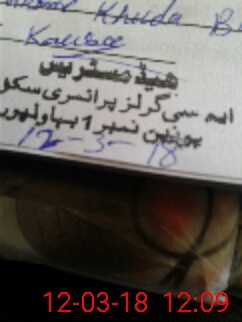 Khuda B
Kausar
ھیڈ مسٹریس
ایم سی گرلز پرائمری سکو
یونین نمبر 1 بہاولپور
12-3-18
12-03-18 12:09